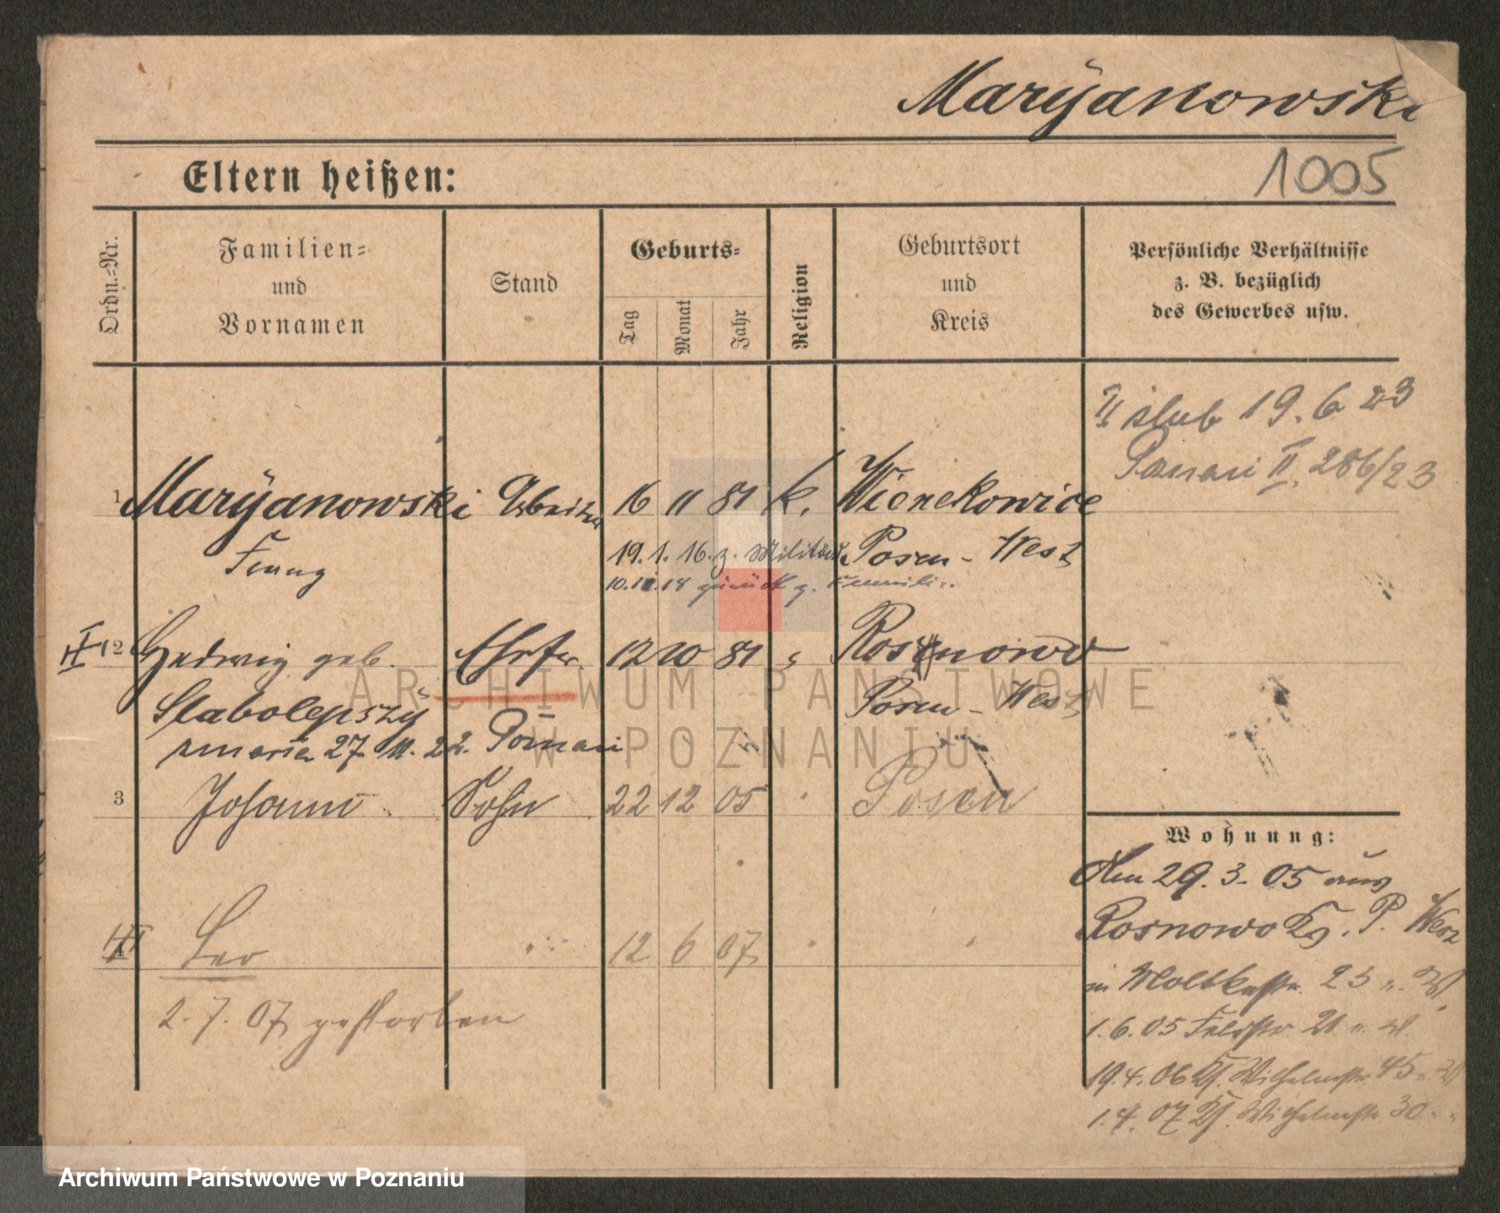 Maryanowski
1005
Eltern heißen:
Ordn.-Nr.
Familien-
und
Vornamen
Stand
Geburts-
Tag
Monat
Jahr
Religion
Geburtsort
und
Kreis
Persönliche Verhältnisse
z. B. bezüglich
des Gewerbes usw.
II ślub 19. 6 23
Poznań II, 286/23
1 Maryanowski Arbeiter 16 11 81 k. Wienckowice
Franz
19. 1. 16. z. Militär Posen - West
10.12.18 zurück z. Familie
II 2 Hedwig geb. Ehefr. 12 10 81 " Rosnowo
Slabolepszy Posen - West
zmarła 27. 11. 22. Poznań
3 Johann Sohn 22 12 05 " Posen
Leo 12 6 07
2. 7. 07 gestorben
Wohnung:
Am 29. 3. 05 aus
Rosnowo Ks. P. West
in Moltkestr. 23
1. 6. 05 Feldstr. 21
19. 4. 06 Kl. Wilhelmstr. 45
1. 4. 07 Kl. Wilhelmstr. 30
ARCHIWUM PAŃSTWOWE
W POZNANIU
Archiwum Państwowe w Poznaniu